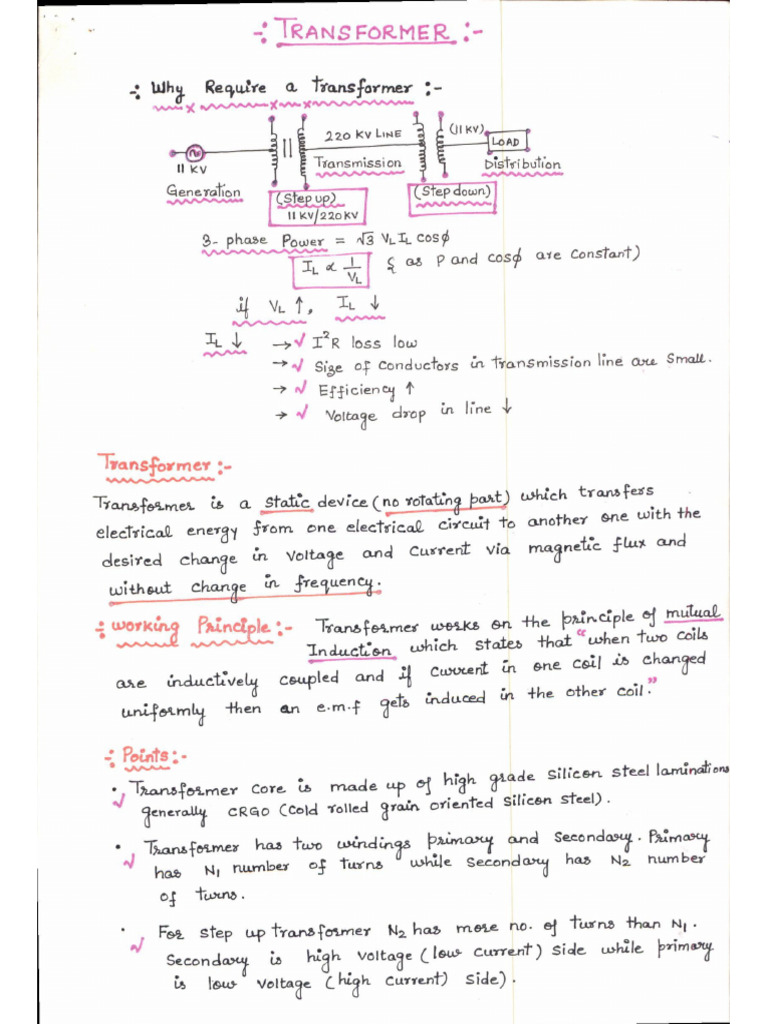 -: TRANSFORMER :-
-: Why Require a transformer :-
220 KV LINE
(11 KV)
LOAD
11 KV
Transmission
Distribution
Generation
(Step up)
11 KV/220 KV
(Step down)
3- phase Power = √3 VL IL cosϕ
IL ∝ 1/VL { as P and cosϕ are constant)
if VL ↑, IL ↓
IL ↓ → √ I²R loss low
→ √ Size of conductors in transmission line are small.
→ √ Efficiency ↑
→ √ Voltage drop in line ↓
Transformer :-
Transformer is a static device (no rotating part) which transfers
electrical energy from one electrical circuit to another one with the
desired change in voltage and current via magnetic flux and
without change in frequency.
÷ Working Principle :- Transformer works on the principle of mutual
Induction which states that "when two coils
are inductively coupled and if current in one coil is changed
uniformly then an e.m.f gets induced in the other coil."
-: Points :-
• Transformer core is made up of high grade silicon steel laminations
√ generally CRGO (cold rolled grain oriented silicon steel).
• Transformer has two windings primary and secondary. Primary
√ has N1 number of turns while secondary has N2 number
of turns.
• For step up transformer N2 has more no. of turns than N1.
√ Secondary is high voltage (low current) side while primary
is low voltage (high current) side).